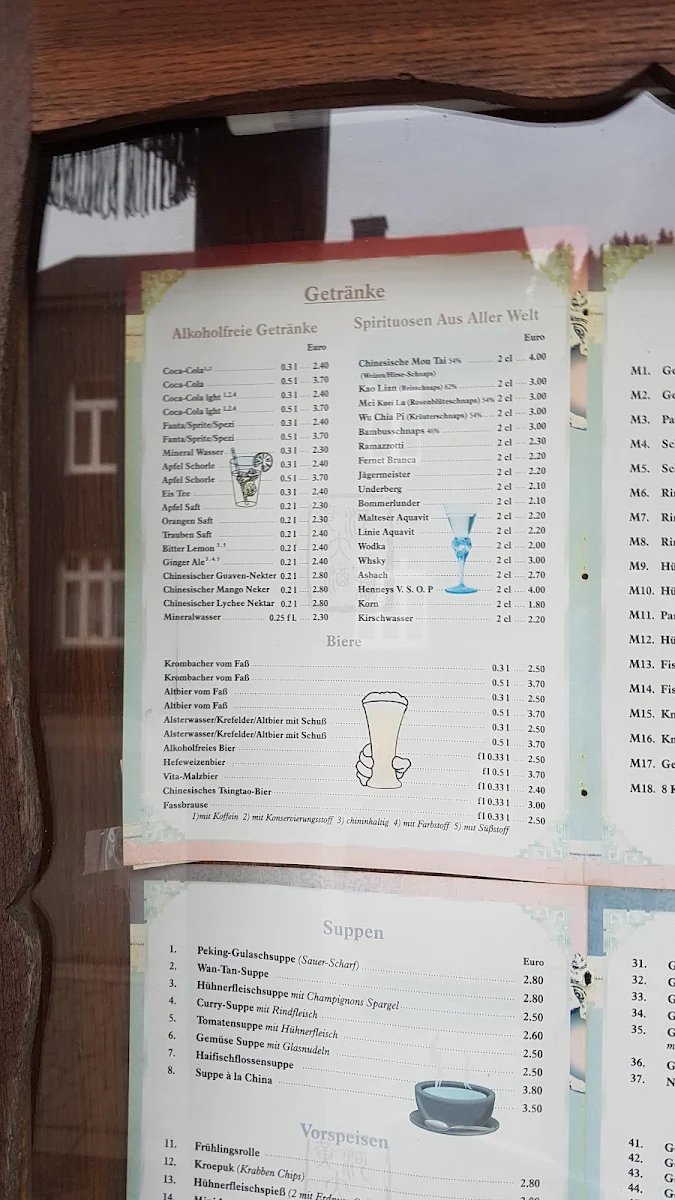 Getränke
Alkoholfreie Getränke
Euro
Coca-Cola 1,2 0.3 l 2.40
Coca-Cola 0.5 l 3.70
Coca-Cola lght 1,2,4 0.3 l 2.40
Coca-Cola lght 1,2,4 0.5 l 3.70
Fanta/Sprite/Spezi 0.3 l 2.40
Fanta/Sprite/Spezi 0.5 l 3.70
Mineral Wasser 0.3 l 2.30
Apfel Schorle 0.3 l 2.40
Apfel Schorle 0.5 l 3.70
Eis Tee 0.3 l 2.40
Apfel Saft 0.2 l 2.30
Orangen Saft 0.2 l 2.30
Trauben Saft 0.2 l 2.40
Bitter Lemon 0.2 l 2.40
Ginger Ale 0.2 l 2.40
Chinesischer Guaven-Nekter 0.2 l 2.80
Chinesischer Mango Neker 0.2 l 2.80
Chinesischer Lychee Nektar 0.2 l 2.80
Mineralwasser 0.25 fl. 2.30
Spirituosen Aus Aller Welt
Euro
Chinesische Mou Tai 54% 2 cl 4.00
(Weizen/Hirse-Schnaps)
Kao Lian (Reisschnaps) 62% 2 cl 3.00
Mei Kuei Lu (Rosenblüteschnaps) 54% 2 cl 3.00
Wu Chia Pi (Kräuterschnaps) 54% 2 cl 3.00
Bambusschnaps 46% 2 cl 3.00
Ramazzotti 2 cl 2.30
Fernet Branca 2 cl 2.20
Jägermeister 2 cl 2.20
Underberg 2 cl 2.10
Bommerlunder 2 cl 2.10
Malteser Aquavit 2 cl 2.20
Linie Aquavit 2 cl 2.20
Wodka 2 cl 2.00
Whsky 2 cl 3.00
Asbach 2 cl 2.70
Henneys V. S. O. P 2 cl 4.00
Korn 2 cl 1.80
Kirschwasser 2 cl 2.20
Biere
Krombacher vom Faß 0.3 l 2.50
Krombacher vom Faß 0.5 l 3.70
Altbier vom Faß 0.3 l 2.50
Altbier vom Faß 0.5 l 3.70
Alsterwasser/Krefelder/Altbier mit Schuß 0.3 l 2.50
Alsterwasser/Krefelder/Altbier mit Schuß 0.5 l 3.70
Alkoholfreies Bier fl 0.33 l 2.50
Hefeweizenbier fl 0.5 l 3.70
Vita-Malzbier fl 0.33 l 2.40
Chinesisches Tsingtao-Bier fl 0.33 l 3.00
Fassbrause fl 0.33 l 2.50
1)mit Koffein 2) mit Konservierungsstoff 3) chininhaltig 4) mit Farbstoff 5) mit Süßstoff
Suppen
Euro
1. Peking-Gulaschsuppe (Sauer-Scharf) 2.80
2. Wan-Tan-Suppe 2.80
3. Hühnerfleischsuppe mit Champignons Spargel 2.50
4. Curry-Suppe mit Rindfleisch 2.60
5. Tomatensuppe mit Hühnerfleisch 2.50
6. Gemüse Suppe mit Glasnudeln 2.50
7. Haifischflossensuppe 3.80
8. Suppe à la China 3.50
Vorspeisen
11. Frühlingsrolle 2.80
12. Kroepuk (Krabben Chips)
13. Hühnerfleischspieß (2 mit
14
M1. Ge
M2. Ge
M3. Pa
M4. Sc
M5. Sc
M6. Rin
M7. Rin
M8. Rin
M9. Hü
M10. Hü
M11. Pa
M12. Hü
M13. Fis
M14. Fis
M15. Kn
M16. Kn
M17. Ge
M18. 8 K
31. G
32. G
33. G
34. G
35. G
m
36. G
37. N
41. G
42. G
43. G
44. G